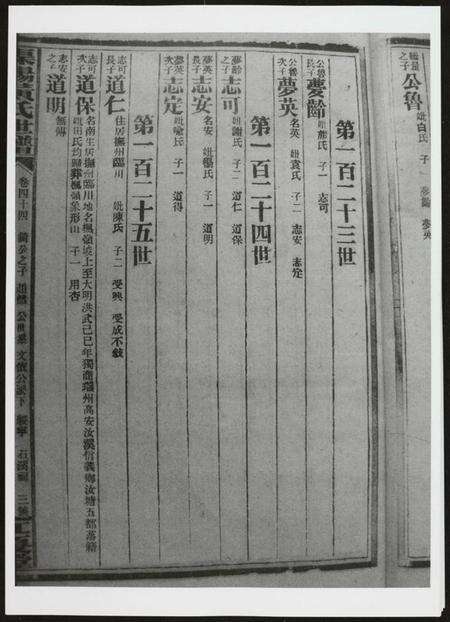 公魯 妣白氏 子 夢齡 夢英
第一百二十三世
公魯長子 夢齡 妣熊氏 子一 志可
公魯次子 夢英 名英 妣袁氏 子二 志安 志定
第一百二十四世
夢齡之子 志可 妣謝氏 子二 道仁 道保
夢英長子 志安 名安 妣楊氏 子一 道明
夢英次子 志定 妣喻氏 子一 道得
第一百二十五世
志可長子 道仁 住居撫州臨川 妣陳氏 子二 受興 受成不敍
志可次子 道保 名南生居撫州臨川地名楓嶺坡上至大明洪武己巳年獨商瑞州高安汝溪信義鄉汝塘五都落籍
妣田氏均歸葬楓嶺象形山 子一 用杏
志安之子 道明 無傳
卷四十四 公世系 文俊公派下